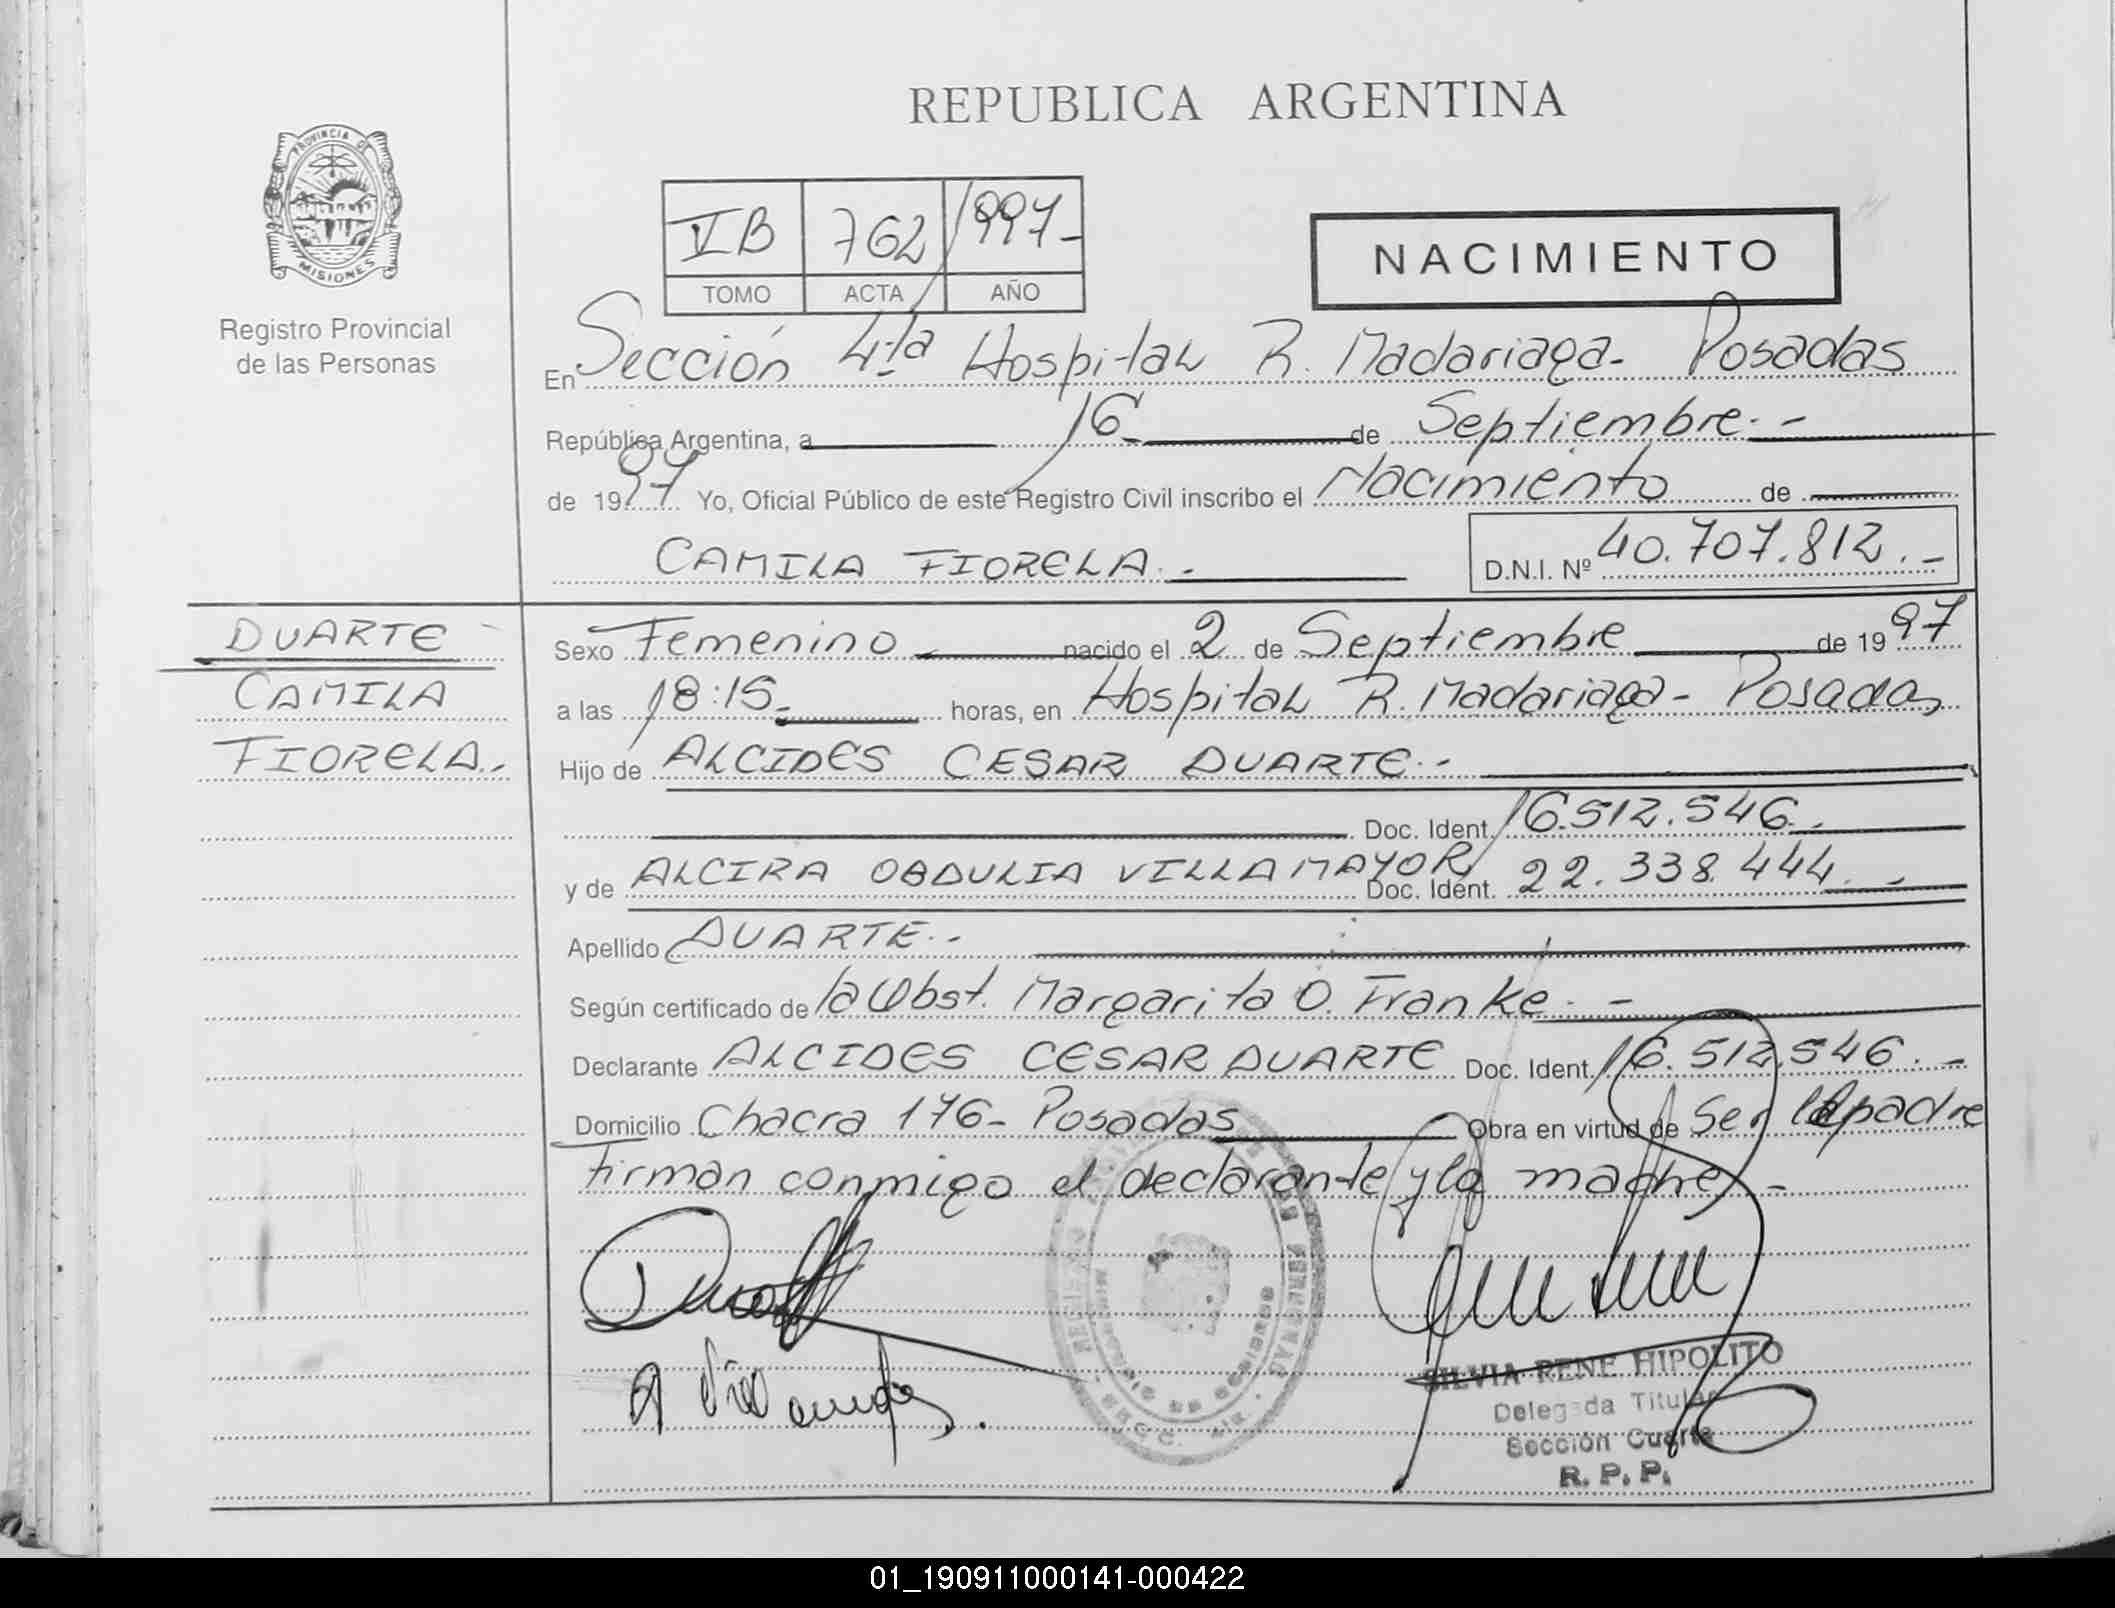 REPUBLICA ARGENTINA
PROVINCIA DE
MISIONES
Registro Provincial
de las Personas
VB 762 1997-
TOMO ACTA AÑO
NACIMIENTO
En Sección 4ta Hospital R. Madariaga- Posadas
República Argentina, a 16 de Septiembre.-
de 1997 Yo, Oficial Público de este Registro Civil inscribo el Nacimiento de
CAMILA FIORELA.- D.N.I. Nº 40.707.812.-
DUARTE
CAMILA
FIORELA.-
Sexo Femenino nacido el 2 de Septiembre de 1997
a las 18:15 horas, en Hospital R. Madariaga- Posadas
Hijo de ALCIDES CESAR DUARTE.-
Doc. Ident. 16.512.546.-
y de ALCIRA OBDULIA VILLAMAYOR Doc. Ident. 22.338.444.-
Apellido DUARTE.-
Según certificado de la Obst. Margarita O. Franke.-
Declarante ALCIDES CESAR DUARTE Doc. Ident. 16.512.546.-
Domicilio Chacra 176- Posadas Obra en virtud de Ser el padre
Firman conmigo el declarante y la madre.-
SILVIA RENE HIPOLITO
Delegada Titular
Sección Cuarta
R. P. P.
01_190911000141-000422